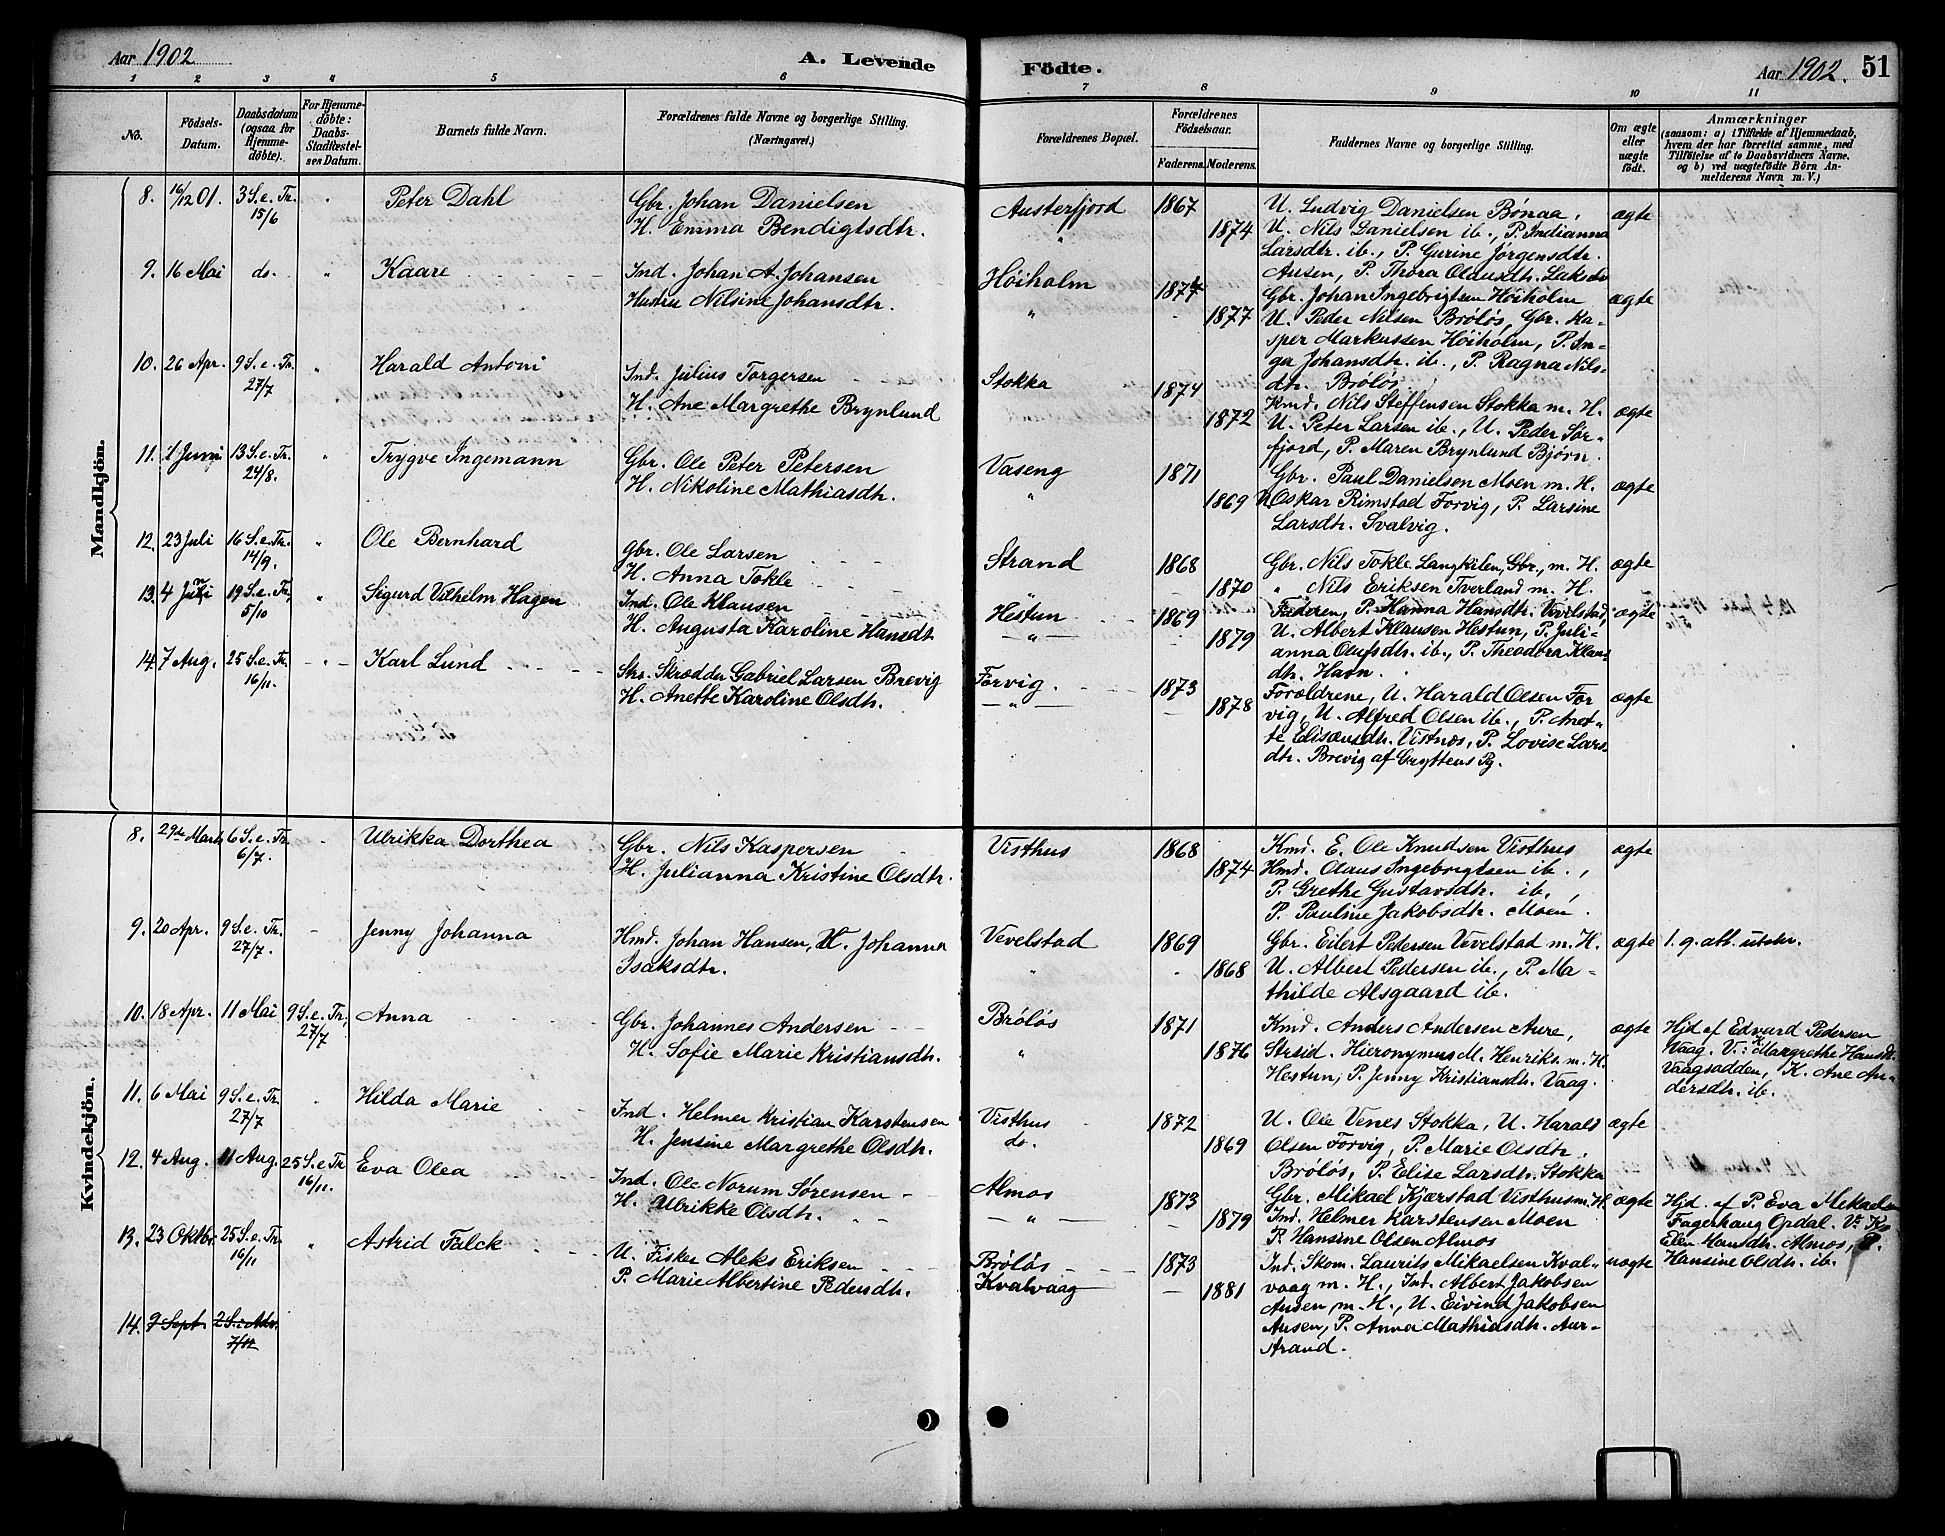 Aar 1902
A. Levende
Födte.
Aar 1902.
51
1 2 3 4 5 6 7 8 9 10 11
No.
Födsels-Datum.
Daabsdatum (ogsaa for Hjemme-döbte).
For Hjemme-döbte: Daabs-Stadfæstel-ses Datum.
Barnets fulde Navn.
Forældrenes fulde Navne og borgerlige Stilling. (Næringsvei.)
Forældrenes Bopæl.
Forældrenes Födselsaar.
Faderens. Moderens.
Faddernes Navne og borgerlige Stilling.
Om ægte eller uægte födt.
Anmærkninger
(saasom: a) i Tilfælde af Hjemmedaab,
hvem der har forrettet samme, med
Tilföielse af to Daabsvidners Navne,
og b) ved uægtefödte Börn An-
melderens Navn m. V.)
Mandkjön.
8. 16/12 01. 3 S. e. Tr. 15/6 " Peter Dahl
Gbr. Johan Danielsen
H. Emma Bendigtsdtr.
Austerfjord 1867
" 1874
U. Ludvig Danielsen Bönaa,
U. Nils Danielsen ib., P. Indianna
Larsdtr. ib., P. Gurine Jörgensdtr.
Ausen, P. Thora Olausdtr. Laksdn
ægte
9. 16 Mai ds. " Kaare
Ind. Johan A. Johansen
Hustru Nilsine Johansdtr.
Höiholm 1877
" 1877
Gbr. Johan Ingebrigtsen Höiholm
U. Peder Nilsen Brölös, Gbr. Ka-
sper Markussen Höiholm, P. In-
ga Johansdtr. ib., P. Ragna Nils-
dtr. Brölös.
ægte
10. 26 Apr. 9 S. e. Tr. 27/7 " Harald Antoni
Ind. Julius Torgersen
H. Ane Margrethe Brynlund
Stokka 1874
1872
Kmd. Nils Steffensen Stokka m. H.
U. Peter Larsen ib., U. Peder Sör-
fjord, P. Maren Brynlund Björn.
ægte
11. 1 Juni 13 S. e. Tr. 24/8. " Trygve Ingemann
Gbr. Ole Peter Petersen
H. Nikoline Mathiasdtr.
Vaseng 1871
" 1869
Gbr. Paul Danielsen Moen m. H.
U. Oskar Rimstad Forvig, P. Larsine
Larsdtr. Svalvig.
ægte
12. 23 Juli 16 S. e. Tr. 14/9. " Ole Bernhard
Gbr. Ole Larsen
H. Anna Tokle
Strand 1868
" 1870
Gbr. Nils Tokle Langkilen, Gbr., m. H.
" Nils Eriksen Tverland m. H.
ægte
13. 4 Juni 19 S. e. Tr. 5/10 " Sigurd Vilhelm Hagen
Ind. Ole Klausen
H. Augusta Karoline Hansdt
Hestun 1869
" 1879
Faderen, P. Hanna Hansdtr. Vevelstad,
U. Albert Klausen Hestun, P. Juli-
anna Olufsdtr. ib., P. Theodora Klaus-
dtr. Havn.
ægte
14. 7 Aug. 25 S. e. Tr. 16/11. " Karl Lund
Str. Skrædder Gabriel Larsen Brevig
H. Anette Karoline Olsdtr.
Forvig. 1873
" 1878
Forældrene, U. Harald Olsen For-
vig, U. Alfred Olsen ib., P. Anet-
te Elisæusdtr. Vistnes, P. Lovise Lars-
dtr. Brevig af Gryttens Pg.
ægte
Kvindekjön.
8. 29de Marts 6 S. e. Tr. 6/7. Ulrikka Dorthea
Gbr. Nils Kaspersen
H. Julianna Kristine Olsdtr.
Visthus 1868
1874
Kmd. E. Ole Knudsen Visthus
Hmd. Olaus Ingebrigtsen ib.,
P. Grethe Gustavsdtr. ib.,
P. Pauline Jakobsdtr. Moen.
ægte
9. 20 Apr. 9 S. e. Tr. 27/7. Jenny Johanna
Hmd. Johan Hansen, H. Johanna
Isaksdtr.
Vevelstad 1869
" 1868
Gbr. Eilert Pedersen Vevelstad m. H.
U. Albert Pedersen ib., P. Ma-
thilde Alsgaard ib.
ægte
1. g. att. utstr.
10. 18 Apr. 11 Mai 9 S. e. Tr. 27/7 Anna
Gbr. Johannes Andersen
H. Sofie Marie Kristiansdtr.
Brölös 1871
" 1876
Kmd. Anders Andersen Aure,
Strsid. Hieronymus M. Henriks. m. H.
Hestun, P. Jenny Kristiansdtr. Vaag.
ægte
Hjd. af Edvard Pedersen
Vaag. V.: K. Margrethe Hansdt.
Vaagsodden, K. Ane An-
dersdtr. ib.
11. 6 Mai 9 S. e. Tr. 27/7 Hilda Marie
Ind. Helmer Kristian Karstensen
H. Jensine Margrethe Olsdtr.
Visthus 1872
ds. 1869
U. Ole Venes Stokka, U. Harald
Olsen Forvig, P. Marie Olsdtr.
Brölös, P. Elise Larsdtr. Stokka
ægte
12. 4 Aug. 11 Aug. 25 S. e. Tr. 16/11. Eva Olea
Ind. Ole Norum Sörensen
H. Ulrikke Olsdtr.
Almos 1873
" 1879
Gbr. Mikael Kjærstad Visthus m. H.
Ind. Helmer Karstensen Moen
P. Hansine Olsen Almos
ægte
Hjd. af P. Eva Mekaels
Fagerhaug Opdal. Vr. K.
Ellen Hansdtr. Almos, P.
Hansine Olsdtr. ib.
13. 23 Oktbr. 25 S. e. Tr. 16/11 " Astrid Falck
U. Fisker Aleks Eriksen
P. Marie Albertine Pedersdtr.
Brölös 1873
Kvalvaag 1881
Ind. Skom. Laurits Mikaelsen Kval-
vaag m. H., Ind. Albert Jakobsen
Ausen, m. H., U. Eivind Jakobsen
Ausen, P. Anna Mathiasdtr. Aur-
strand.
uægte
14. 7 Sept. 2 S. i Adv. 7/12